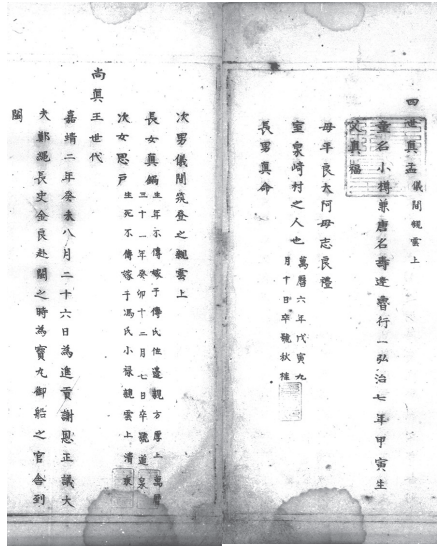 四世真孟 儀間親雲上
童名小樽兼唐名壽達曹行一弘治七年甲寅生
父真福
母平良太阿母志良禮
室泉崎村之人也 萬曆六年戊寅九
月十日卒號秋桂
長男真命
次男儀間筑登之親雲上
長女真鍋 生年不傳嫁于傅氏住邊親方厚上萬曆
三十一年癸卯十二月七日卒號道泉
次女思戶 生死不傳嫁于馮氏小祿親雲上清東
尚真王世代
嘉靖二年癸未八月二十六日為進貢謝恩正議大
夫鄭繩長史金良赴閩之時為寶丸御船之官舍到
閩